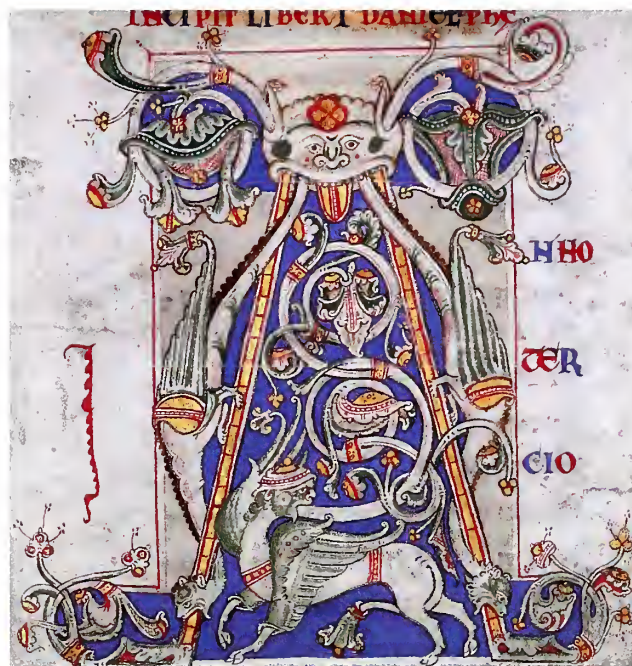 INCIPIT LIBER DANIEL PHE
ANNO
TER
CIO